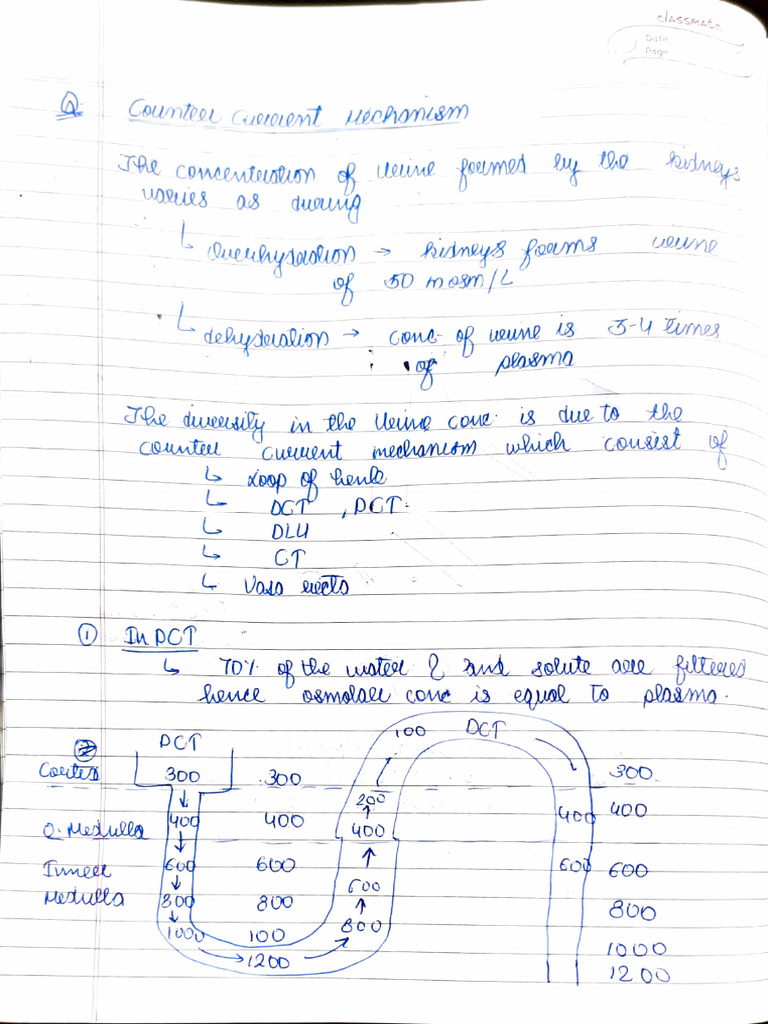 classmate
Date
Page
Q. Counter Current Mechanism
The concentration of Urine formed by the kidneys
varies as during
↳ Overhydration → kidneys forms urine
of 50 mosm/L
↳ dehydration → conc. of urine is 3-4 times
of plasma
The diversity in the Urine conc. is due to the
counter current mechanism which consist of
↳ Loop of henle
↳ DCT, PCT
↳ DLH
↳ CT
↳ Vasa recta
① In PCT
↳ 70% of the water & and solute are filtered
hence osmolar conc is equal to plasma.
② PCT 100 DCT
Cortex 300 300 300
200
O. Medulla 400 400 400 400 400
Inner 600 600 600 600 600
Medulla 800 800 800 800
1000 100 1000
1200 1200